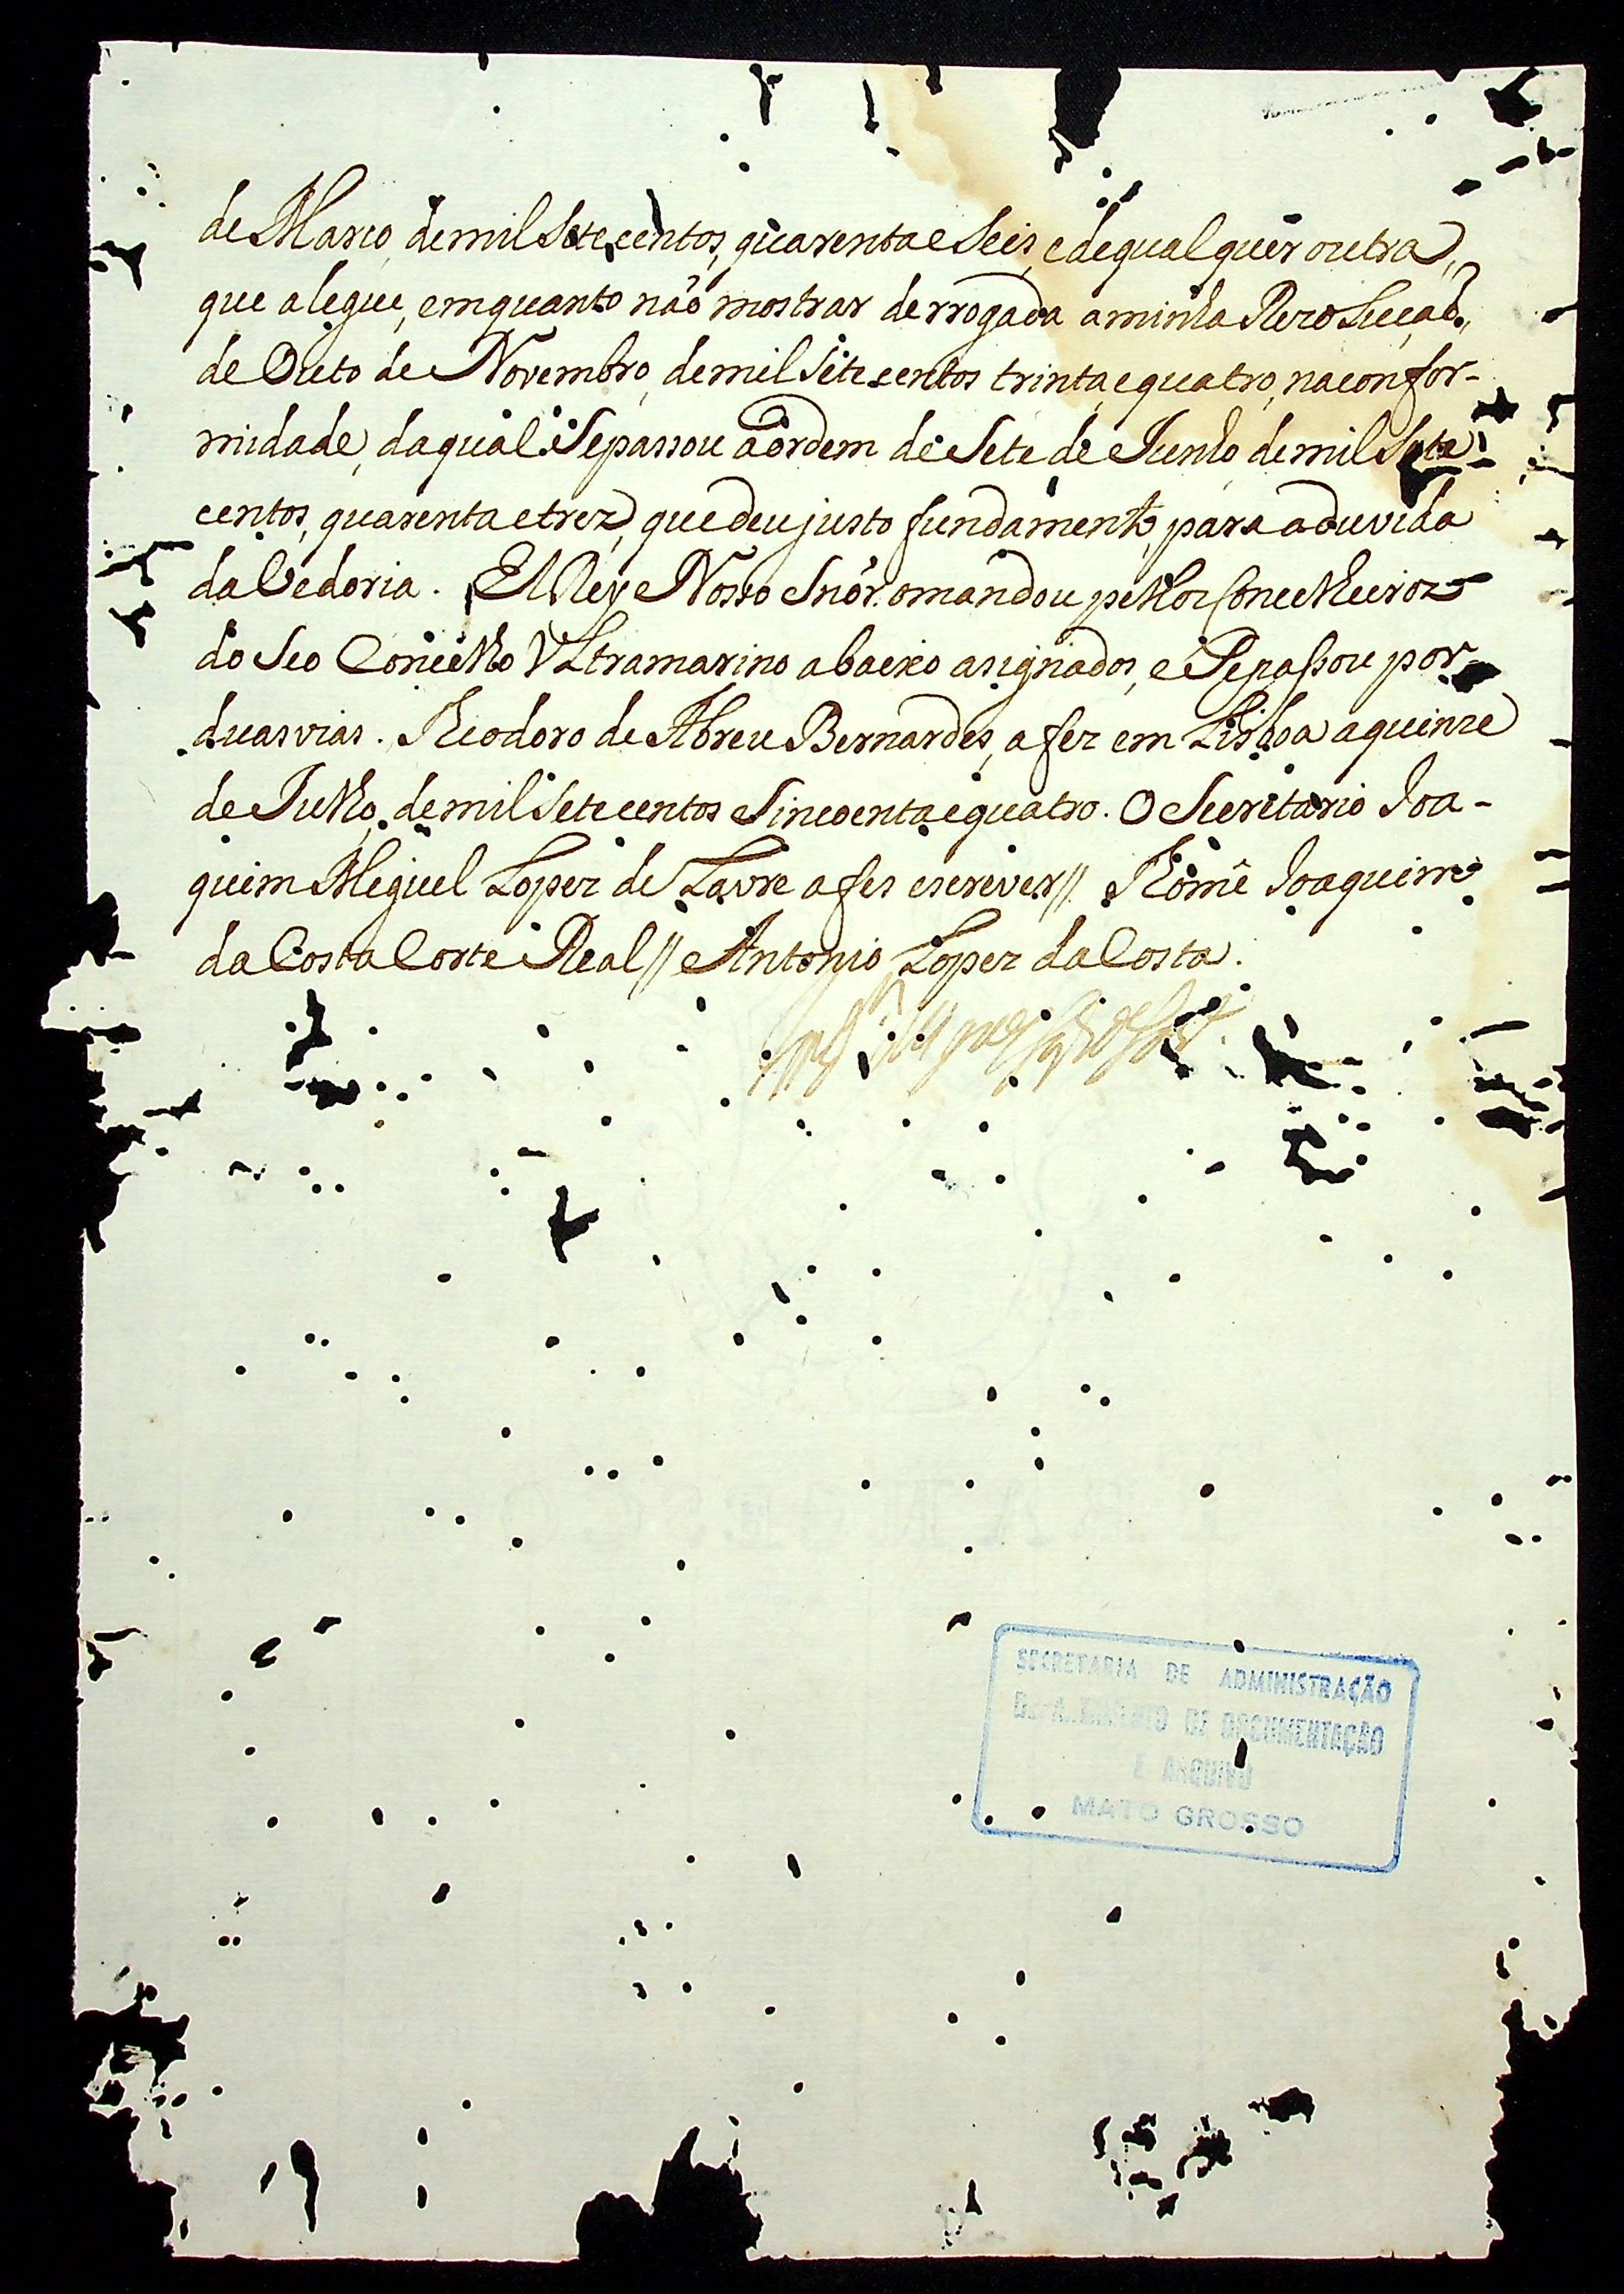 de Março, de mil Sete centos, quarenta e Seis, e de qual quer outra,
que alegue, em quanto não mostrar derrogada a minha Rezoluçaõ,
de Outo de Novembro, de mil Sete centos trinta, e quatro, na confor-
midade, da qual Se passou a ordem de Sete de Junho de mil Sete
centos, quarenta e trez, que deu justo fundamento, para a duvida
da Vedoria. El Rey Nosso Snõr. o mandou pellos Conselheiroz
do Seo Concelho Ultramarino abaixo asignados, e Se passou por
duas vias. Theodoro de Abreu Bernardes, a fez em Lisboa a quinze
de Julho, de mil Sete centos Sincoenta e quatro. O Secretario Joa-
quim Miguel Lopez de Lavre a fes escrever // Thomê Joaquim
da Costa Corte Real // Antonio Lopez da Costa.
SECRETARIA DE ADMINISTRAÇÃO
DEPARTAMENTO DE DOCUMENTAÇÃO
E ARQUIVO
MATO GROSSO